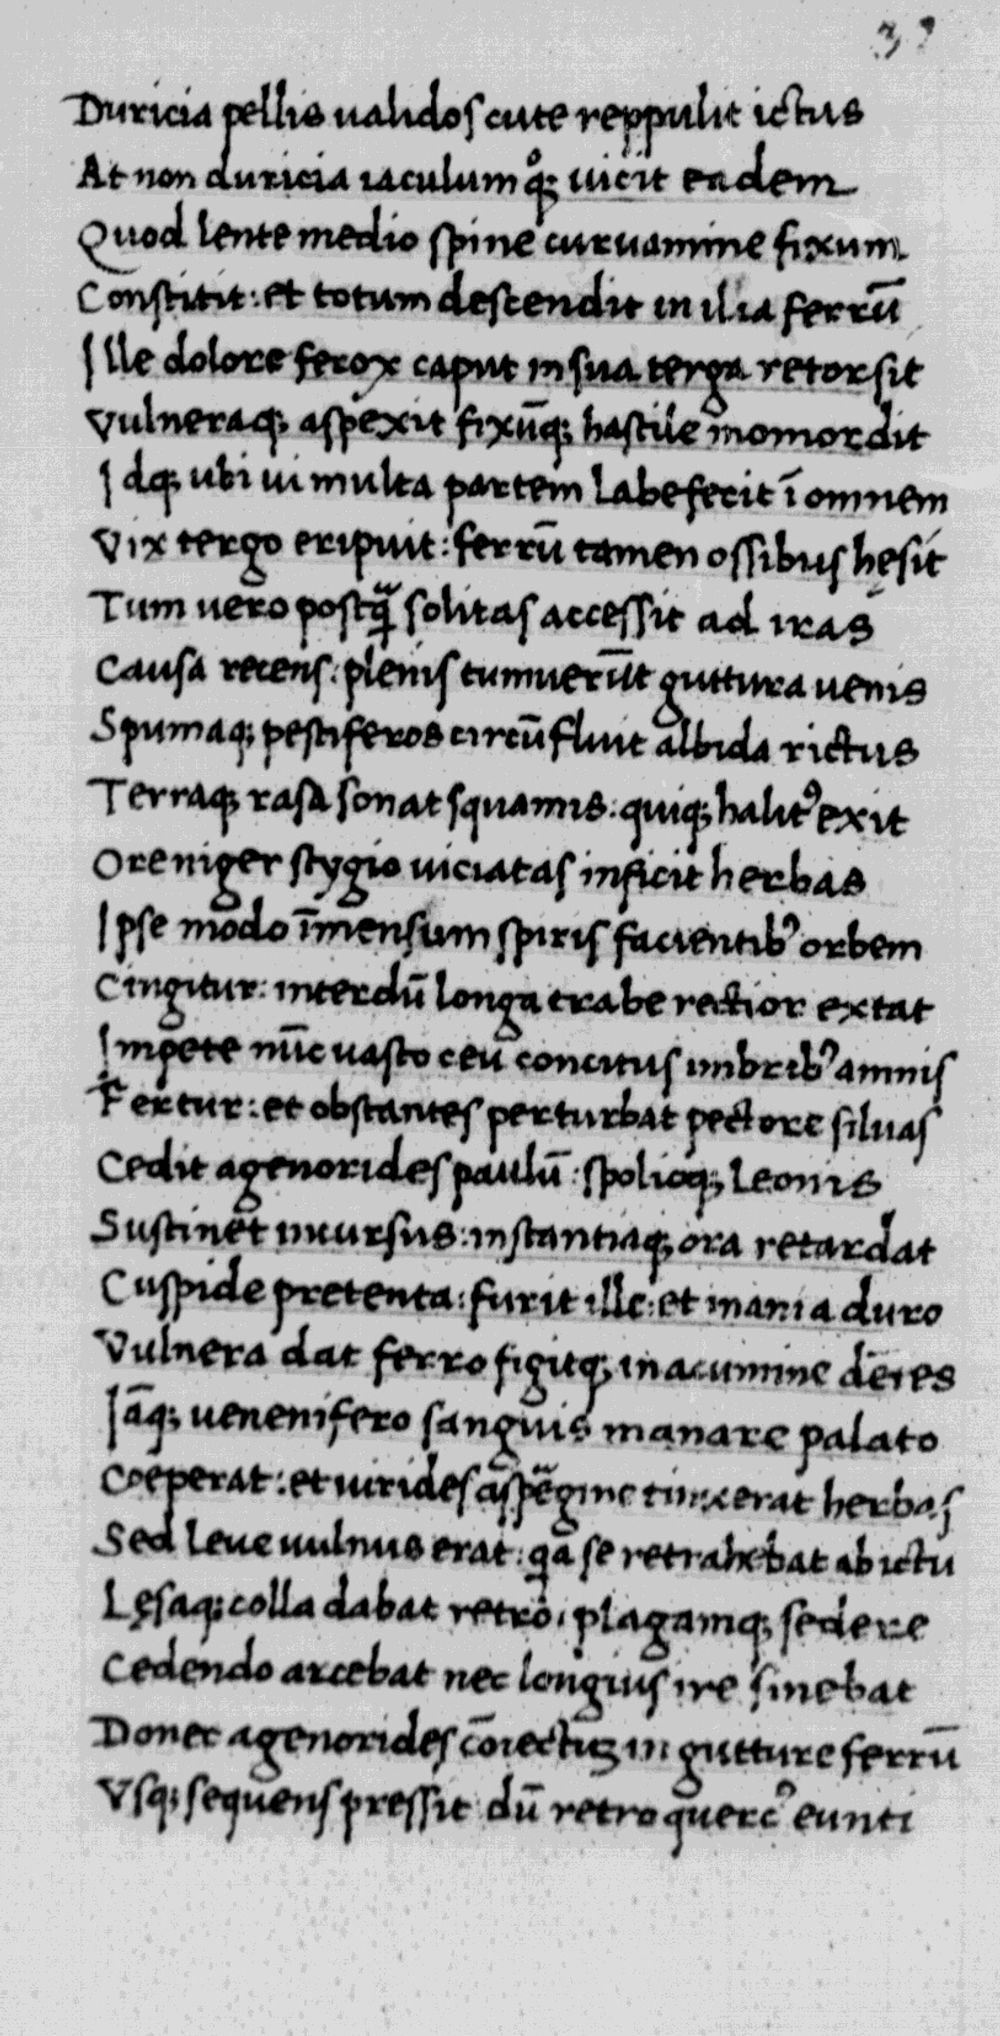 38
Duricia pellis ualidos cute reppulit ictus
At non duricia iaculum qͦꝫ uicit eadem
Quod lente medio spine curuamine fixum
Constitit: et totum descendit in ilia ferrū
Ille dolore ferox caput in sua terga retorsit
Vulneraqꝫ aspexit fixūqꝫ hastile momordit
Idqꝫ ubi ui multa partem labefecit ī omnem
Vix tergo eripuit: ferrū tamen ossibus hesit
Tum uero postqᷓ solitas accessit ad iras
Causa recens: plenis tumuerūt guttura uenis
Spumaqꝫ pestiferos circūfluit albida rictus
Terraqꝫ rasa sonat squamis: quiqꝫ halitꝰ exit
Ore niger stygio uiciatas inficit herbas
Ipse modo īmensum spiris facientibꝰ orbem
Cingitur: interdū longa trabe rectior extat
Impete nūc uasto ceu concitus imbribꝰ amnis
Fertur: et obstantes perturbat pectore siluas
Cedit agenorides paulū: spolioqꝫ leonis
Sustinet incursus: instantiaqꝫ ora retardat
Cuspide pretenta: furit ille: et inania duro
Vulnera dat ferro figitqꝫ in acumine dētes
Iāqꝫ uenenifero sanguis manare palato
Coeperat: et uirides aspēgine tinxerat herbas
Sed leue uulnus erat: qa se retrahebat ab ictu
Lesaqꝫ colla dabat retro: plagamqꝫ sedere
Cedendo arcebat nec longius ire sinebat
Donec agenorides cōiectuꝫ in gutture ferrū
Vsqꝫ sequens pressit dū retro quercꝰ eunti